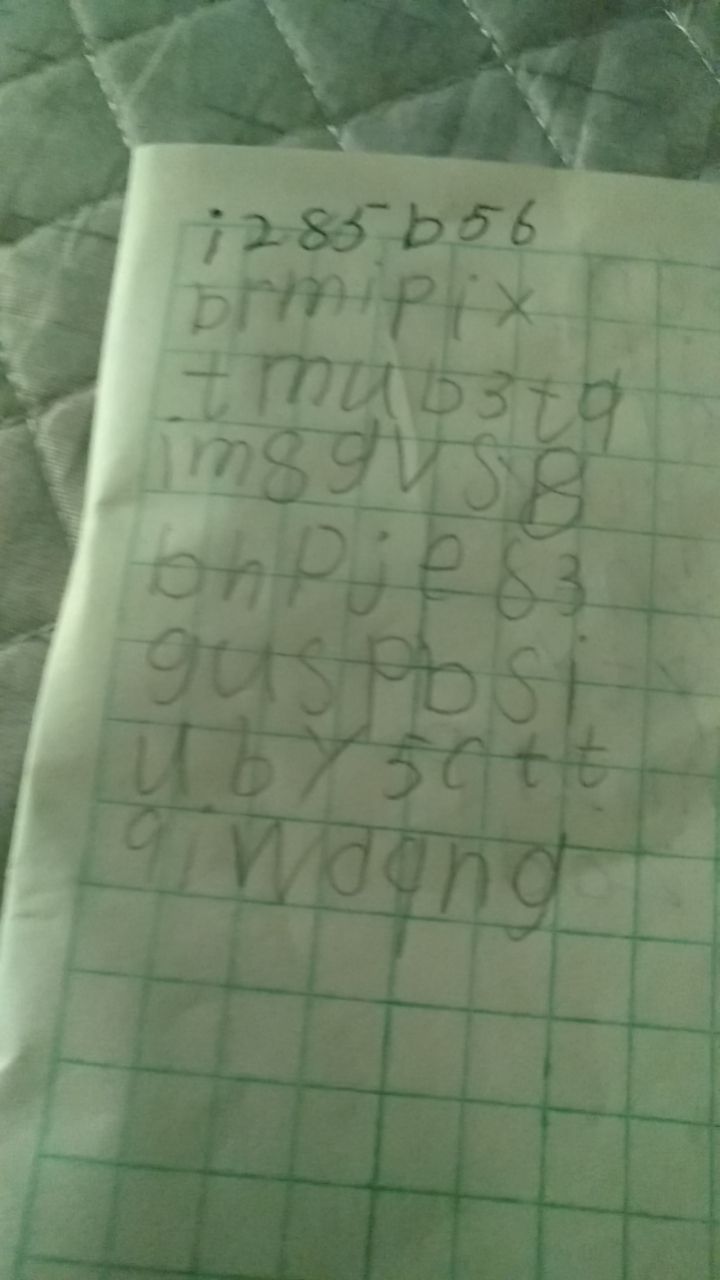 i285b56
brmipix
tmub3tq
im8gvs8
bhpje83
guspbsi
uby5ctt
qiwdqng